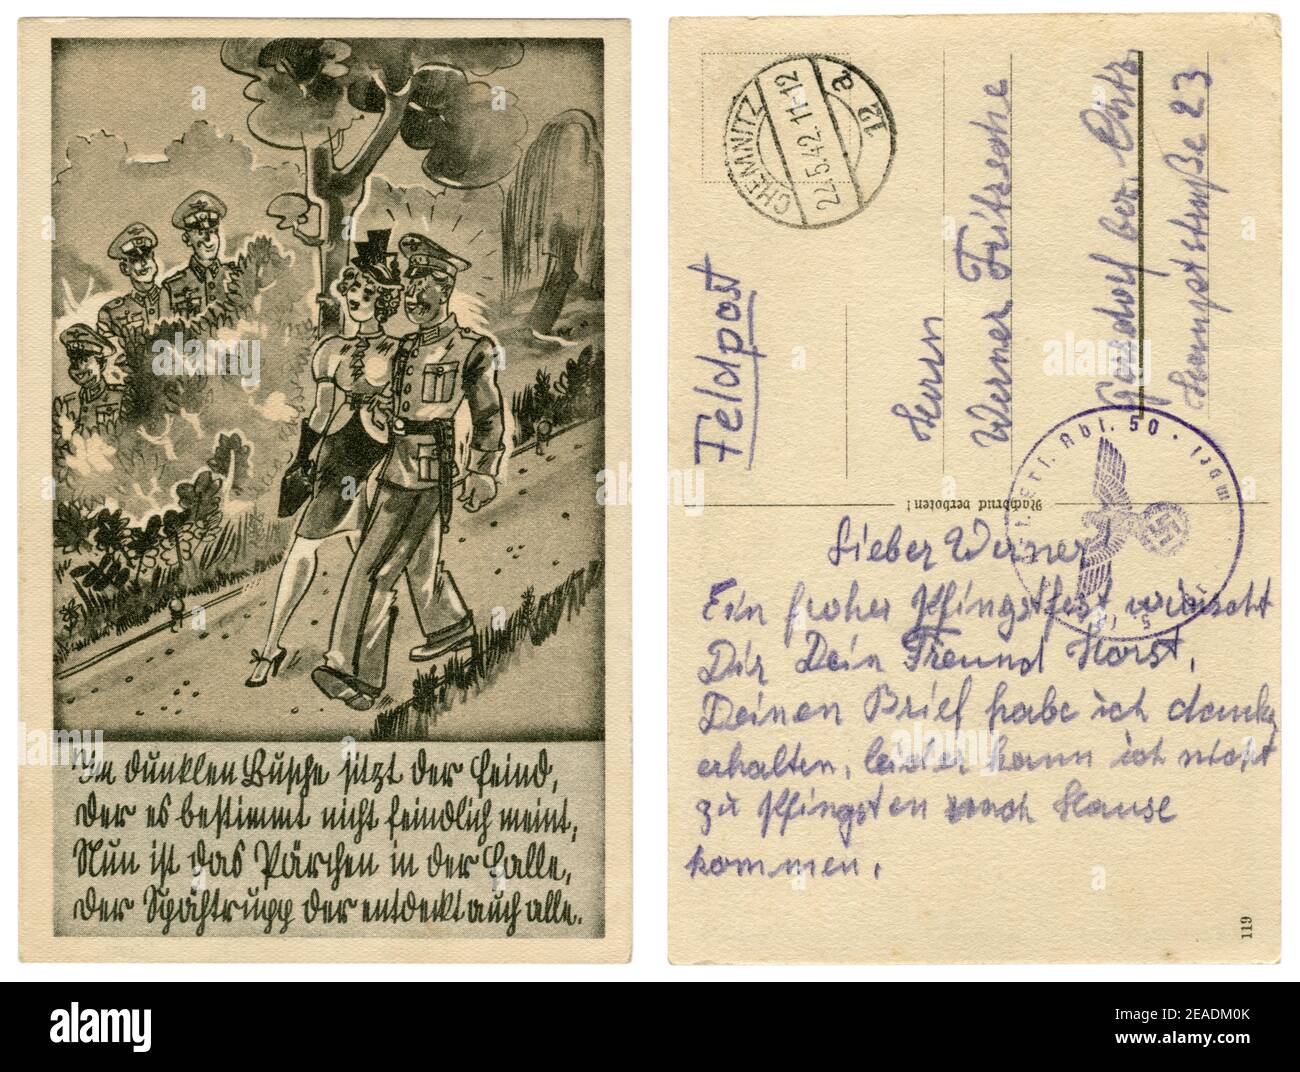 Im dunklen Busche sitzt der Feind,
Der es bestimmt nicht feindlich meint,
Nun ist das Pärchen in der Falle,
Der Spähtrupp der entdeckt auch alle.
CHEMNITZ
22.5.42.11-12
12
a
Feldpost
Herrn
Werner Fritzsche
Gersdorf bez. Chtz.
Hauptstraße 23
Nachdruck verboten!
Abt. 50
Lieber Werner!
Ein froher Pfingstfest wünscht
Dir Dein Freund Horst,
Deinen Brief habe ich dankg
erhalten, leider kann ich nicht
zu Pfingsten nach Hause
kommen.
119
alamy
Image ID: 2EADM0K
www.alamy.com